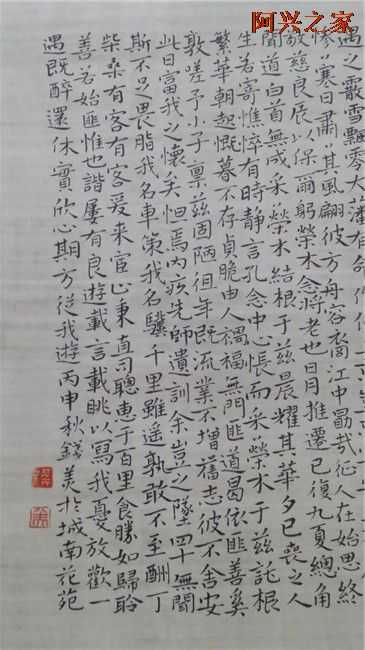 阿兴之家
遇之霰雪飄零大藩有命作
慘〻寒日肅〻其風翩彼方舟容裔江中勖哉征人在始思終
敬茲良辰以保爾躬榮木念將老也日月推遷已復九夏總角
聞道白首無成采〻榮木結根于茲晨耀其華夕已喪之人
生若寄憔悴有時靜言孔念中心悵而采〻榮木于茲託根
繁華朝起慨暮不存貞脆由人禍福無門匪道曷依匪善奚
敦嗟予小子稟茲固陋徂年既流業不增舊志彼不舍安
此日富我之懷矣怛焉內疚先師遺訓余豈之墜四十無聞
斯不足畏脂我名車策我名驥千里雖遙孰敢不至酬丁
柴桑有客有客爰來宦止秉直司聰惠于百里飡勝如歸聆
善若始匪惟也諧屢有良遊載言載眺以寫我憂放歡一
遇既醉還休實欣心期方從我遊丙申秋美於城南花苑